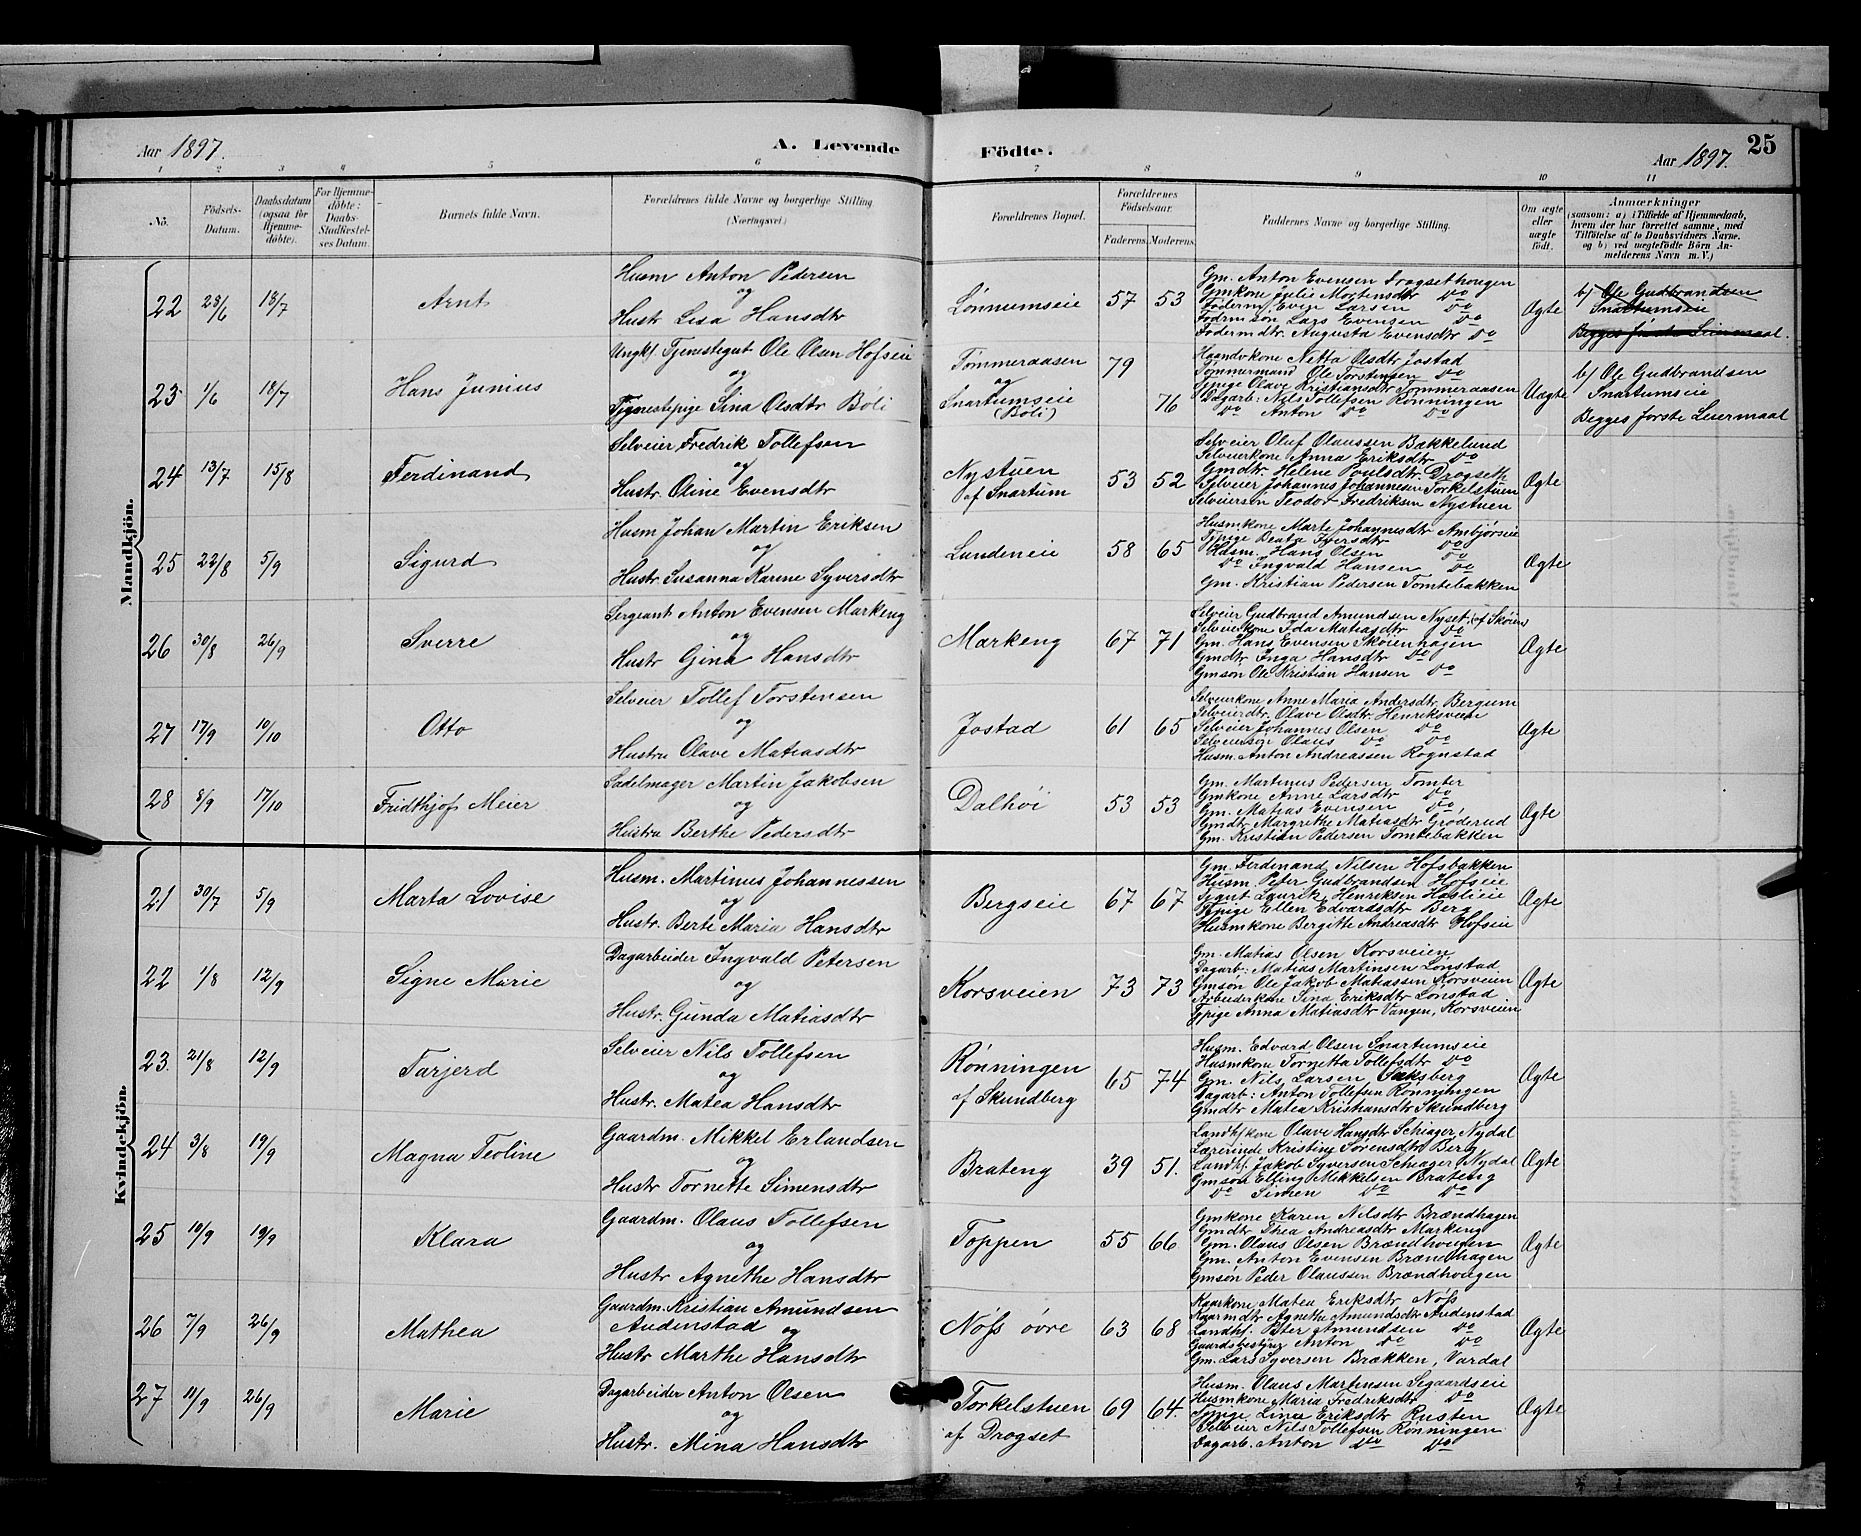 Aar 1897. A. Levende Födte. Aar 1897. 25
1 2 3 4 5 6 7 8 9 10 11
No. Födsels-Datum. Daabsdatum (ogsaa för Hjemmedöbte). For Hjemmedöbte: Daabs-Stadfæstelses Datum. Barnets fulde Navn. Forældrenes fulde Navne og borgerlige Stilling (Næringsvei) Forældrenes Bopæl. Forældrenes Födselsaar. Faderens. Moderens. Faddernes Navne og borgerlige Stilling. Om ægte eller uægte födt. Anmærkninger (saasom: a) i Tilfælde af Hjemmedaab, hvem der har forrettet samme, med Tilföielse af to Daabsvidners Navne. og b) ved uægtefödte Börn Anmelderens Navn m. V.)
Mandkjön.
22 28/6 18/7 Arnt
Husm Anton Pedersen
og
Hustr Lisa Hansdtr
Lønnumseie 57 53
Gm. Anton Evensen Drogsethougen
Gmkone Julie Mortensdtr Do
Foderm. Even Larsen Do
Fodrmsøn Lars Evensen Do
Fodermdtr. Augusta Evensdtr Do
Ægte
b) Ole Gudbrandsen
Snartumseie
Begges første Leiermaal.
23. 1/6 18/7 Hans Junius
Ungk. Tjenestegut Ole Olsen Hofseie
og
Tjenestepige Sina Olsdtr Böli
Tømmeraasen 79
og
Snartumseie 76
(Böli)
Haandvkone Netta Olsdtr Jostad
Tømmermand Ole Torstensen Do
Tjpige Olave Kristiansdtr Tømmeraasen
Dagarb: Nils Tollefsen Rønningen
Do Anton Do Do
Uægte
b) Ole Gudbrandsen
Snartumseie
Begges første Leiermaal
24 13/7 15/8 Ferdinand
Selveier Fredrik Tollefsen
og
Hustr. Oline Evensdtr
Nystuen
af Snartum 53 52
Selveier Oluf Olaussen Bakkelund
Selveierkone Anna Eriksdtr Do
Gmdtr. Helene Poulsdtr. Drogseth
Selveier Johannes Johannesen Torkelstuen
Selveiersøn Teodor Fredriksen Nystuen
Ægte
25 22/8 5/9 Sigurd
Husm Johan Martin Eriksen
og
Hustr Susanna Karine Syversdtr
Lundeneie 58 65
Husmkone Marte Johannesdtr Ambjørseie
Tjpige Beata Iversdtr Do
Husm. Hans Olsen Do
Do Ingvald Hansen Do
Gm. Kristian Pedersen Tomtebakken
Ægte
26 30/8 26/9 Sverre
Sergeant Anton Evensen Markeng
og
Hustr Gina Hansdtr
Markeng 67 71
Selveier Gudbrand Amundsen Nyset (af Skøien)
Selveierkone Ida Matiasdtr Do
Gm. Hans Evensen Skøienhagen
Gmdtr Inga Hansdtr Do
Gmsøn Ole Kristian Hansen Do
Ægte
27 17/9 10/10 Otto
Selveier Tollef Torstensen
og
Hustru Olave Matiasdtr
Jostad 61 65
Selveierkone Anne Maria Andersdtr. Bergum
Selveierdtr. Olave Olsdtr. Henriksvese
Selveier Johannes Olsen Do
Selveiersøn Olaus Do Do
Husm. Anton Andreassen Rognstad
Ægte
28 8/9 17/10 Fridthjof Meier
Sadelmager Martin Jakobsen
og
Hustru Berthe Pedersdtr
Dalhöi 53 53
Gm. Martinus Pedersen Tomter
Gmkone Anne Larsdtr Do
Gm. Matias Evensen Do
Gmdtr Margrethe Matiasdtr Gjøderud
Gm. Kristian Pedersen Tomtebakken
Ægte
Kvindekjön.
21 30/7 5/9 Marta Lovise
Husm. Martinus Johannessen
og
Hustr. Berte Maria Hansdtr
Bergseie 67 67
Gm. Ferdinand Nilsen Hofsbakken
Husm. Peter Gudbrandsen Hofseie
Tjgut Laurits Henriksen Haslieie
Tjpige Ellen Edvardsdtr Berg
Husmkone Bergitte Andreasdtr Hofseie
Ægte
22 1/8 12/9 Signe Marie
Dagarbeider Ingvald Petersen
og
Hustr. Gunda Matiasdtr
Korsveien 73 73
Gm. Matias Olsen Korsveien
Dagarb: Matias Martinsen Lonstad
Gmsøn Ole Jakob Matiassen Korsveien
Arbeiderkone Sina Eriksdtr Lonstad
Tjpige Anna Matiasdtr Vangen, Korsveien
Ægte
23. 21/8 12/9 Tarjerd
Selveier Nils Tollefsen
og
Hustr. Matea Hansdtr
Rønningen
af Skundberg 65 74
Husm. Edvard Olsen Snartumseie
Husmkone Tornetta Tollefsdtr Do
Gm. Nils Larsen
Dagarb: Anton Tollefsen Rønningen
Gmdtr Matea Kristiansdtr Skundberg
Ægte
24 3/8 19/9 Magna Teoline
Gaardm. Mikkel Erlandsen
og
Hustr Tornette Simensdtr
Brateng 39 51.
Landhkone Olave Hansdtr Schiager Nydal
Lærerinde Kristine Sørensdtr Berg
Landh. Jakob Syversen Schiager Nydal
Gmsøn Elling Mikkelsen Brateng
Do Simen Do Do
Ægte
25 10/9 19/9 Klara
Gaardm. Olaus Tollefsen
og
Hustr Agnethe Hansdtr
Toppen 55 66
Gmkone Karen Nilsdtr Brændhagen
Gmdtr Thea Andreasdtr Markeng
Gm. Olaus Olsen Brændhougen
Gm. Anton Evensen Brændhagen
Gmsøn Peder Olaussen Brændhougen
Ægte
26 7/9 26/9 Mathea
Gaardm. Kristian Amundsen
Audenstad
og
Hustr Marthe Hansdtr
Nøss øvre 63 68
Kaarkone Matea Eriksdtr Nøss
Kaarmdtr Agnethe Amundsdtr Audenstad
Landhf. Peter Amundsen Do
Gaardsbestyrer Anton Do Do
Gm. Lars Syversen Brækken, Vardal
Ægte
27 11/9 26/9 Marie
Dagarbeider Anton Olsen
og
Hustr. Mina Hansdtr
Torkelstuen
af Drogset 69 64.
Husm. Olaus Martensen Segaardseie
Husmkone Maria Fredriksdtr Do
Tjpige Lina Eriksdtr Rusten
Selveier Nils Tollefsen Rønningen
Dagarb. Anton Do Do
Ægte